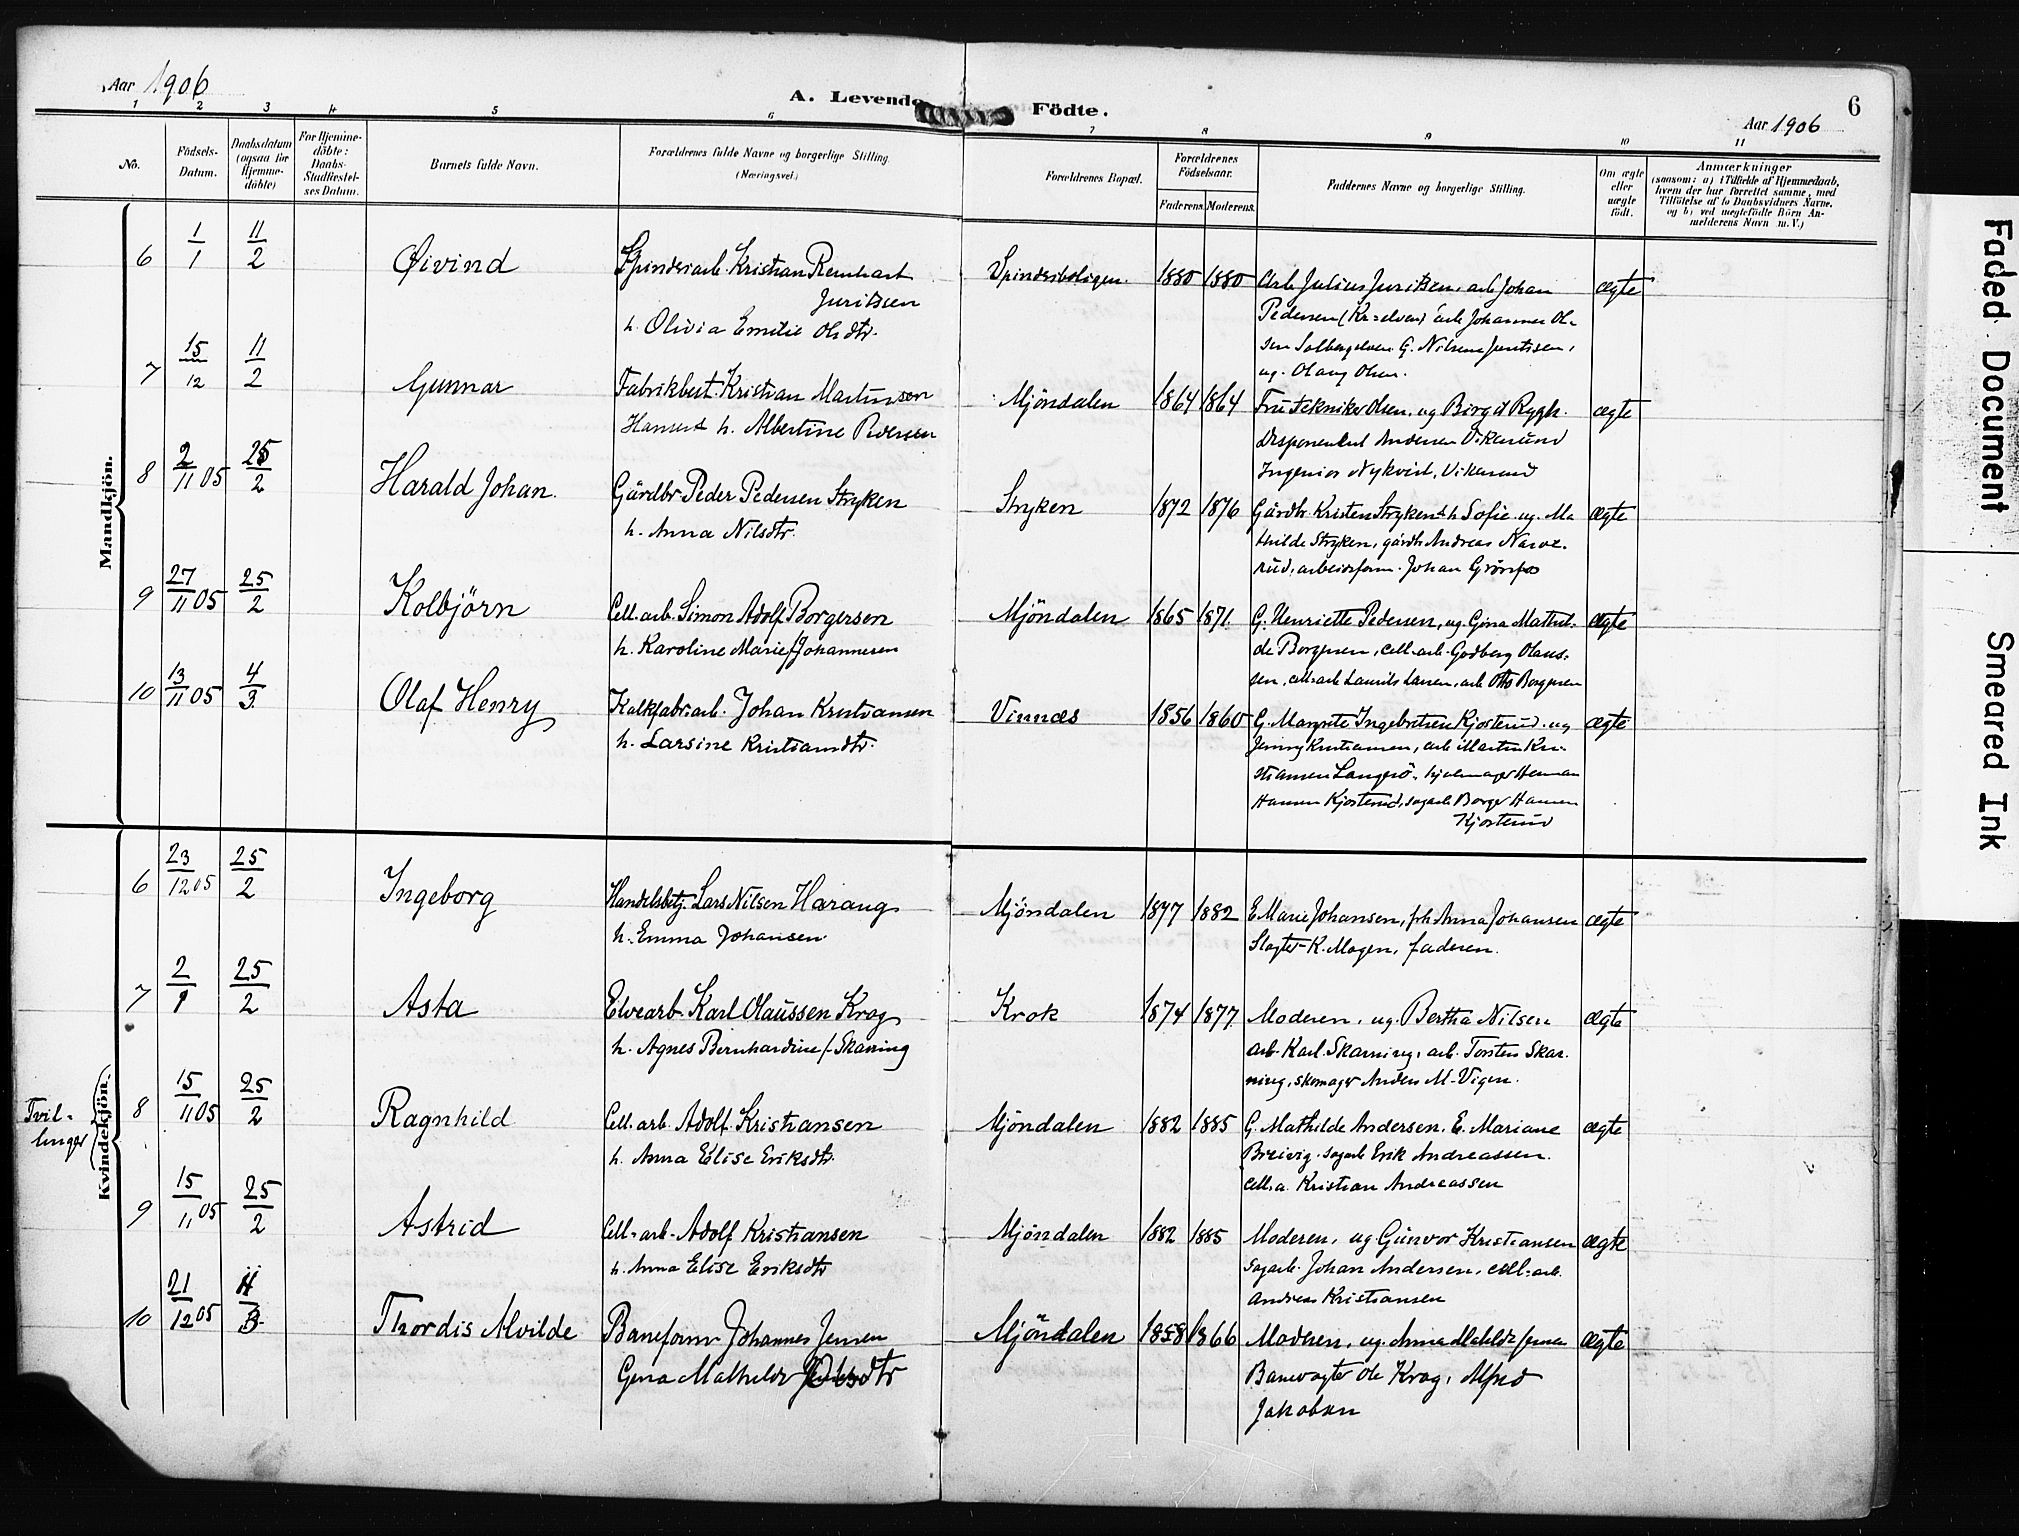 Aar 1906
A. Levende Födte.
6
Aar 1906
1 2 3 4 5 6 7 8 9 10 11
No.
Födsels-
Datum.
Daabsdatum
(ogsaa for
Hjemme-
döbte)
For Hjemme-
döbte:
Daabs-
Stadfæstel-
ses Datum.
Barnets fulde Navn.
Forældrenes fulde Navne og borgerlige Stilling.
(Næringsvei.)
Forældrenes Bopæl.
Forældrenes
Födselsaar.
Faderens. Moderens.
Faddernes Navne og borgerlige Stilling.
Om ægte
eller
uægte
födt.
Anmærkninger
(saasom: a) i Tilfælde af Hjemmedaab,
hvem der har forrettet samme, med
Tilföielse af to Daabsvidners Navne,
og b) ved uægtefödte Börn An-
melderens Navn m. V.)
Mandkjön.
6 1/1 11/2 Øivind
Spinderiarb. Kristian Reinhart
Juritssen
h. Olivia Emilie Olsdtr.
Spinderiboligen. 1880 1880
Arb Julius Juritsen, arb Johan
Pedersen (Kr-elven) arb Johannes Ol-
sen Solbergelven G. Juritsen,
og Olaug Olsen.
ægte
7 15/12 11/2 Gunnar
Fabrikbest. Kristian Martinsen
Hansen & h. Albertine Pedersen
Mjöndalen 1864 1864
Fru Tekniker Olsen, og Birgit Rygh.
Disponent Andersen Vikersund
Ingeniör Nykvist, Vikersund
ægte
8 2/11 05 25/2 Harald Johan.
Gårdbr Peder Pedersen Stryken
h. Anna Nilsdtr.
Stryken 1872 1876
Gårdb. Kristen Stryken & h Sofie og Ma
thilde Stryken, gårdb Andreas Narve-
rud, arbeidsform. Johan Grönfos
ægte
9 27/11 05 25/2 Kolbjörn
Cell. arb. Simon Adolf Borgersen
h. Karoline Marie f. Johannesen
Mjöndalen 1865 1871.
G. Henriette Pedersen, og Gina Mathil-
de Borgersen, cell-arb. Godberg Olaus-
sen, cell-arb Laurits Larsen, arb Otto Borgersen
ægte
10 13/11 05 4/3. Olaf Henry
Kalkfabr.arb. Johan Kristiansen
h. Larsine Kristiansdtr.
Vinnæs 1856 1860
G. Margrete Ingebretsen Kjosterud og
Jenny Kristiansen, arb Martin Kri-
stiansen Langesö, hjulmager Herman
Hansen Kjosterud, sagarb Borger Hansen
Kjosterud
ægte
Kvindekjön.
6 23/12 05 25/2 Ingeborg
Handelsbetj. Lars Nilsen Haraug
h. Emma Johansen.
Mjöndalen 1877 1882
E. Marie Johansen, frk. Anna Johansen
Slagter K. Mogen, faderen.
ægte
7 2/1 25/2 Asta
Elvearb. Karl Olaussen Krog
h. Agnes Bernhardine f. Skarning
Krok 1874 1877.
Moderen, og Bertha Nilsen
arb. Karl Skarning, arb. Torsten Skar-
ning, skomager Anders M. Vigen.
ægte
Tvil-
linger
8 15/11 05 25/2 Ragnhild
Cell. arb. Adolf Kristiansen
h. Anna Elise Eriksdtr.
Mjöndalen 1882 1885
G. Mathilde Andersen. E. Mariane
Breivig. sagarb Erik Andreassen.
cell.a. Kristian Andreassen
ægte
9 15/11 05 25/2 Astrid
Cell. arb. Adolf Kristiansen
h. Anna Elise Eriksdtr
Mjöndalen 1882 1885
Moderen, og Gunvor Kristiansen
sagarb. Johan Andersen, cell. arb.
Andreas Kristiansen
ægte
10 21/12 05 Thordis Alvilde
Baneform Johannes Jensen
Gina Mathilde Olsdtr
Mjöndalen 1858 1866
Moderen, og Anna Mathilde Jensen
Banevogter Ole Krog, Alfred
Jakobsen
ægte
Faded Document
Smeared Ink